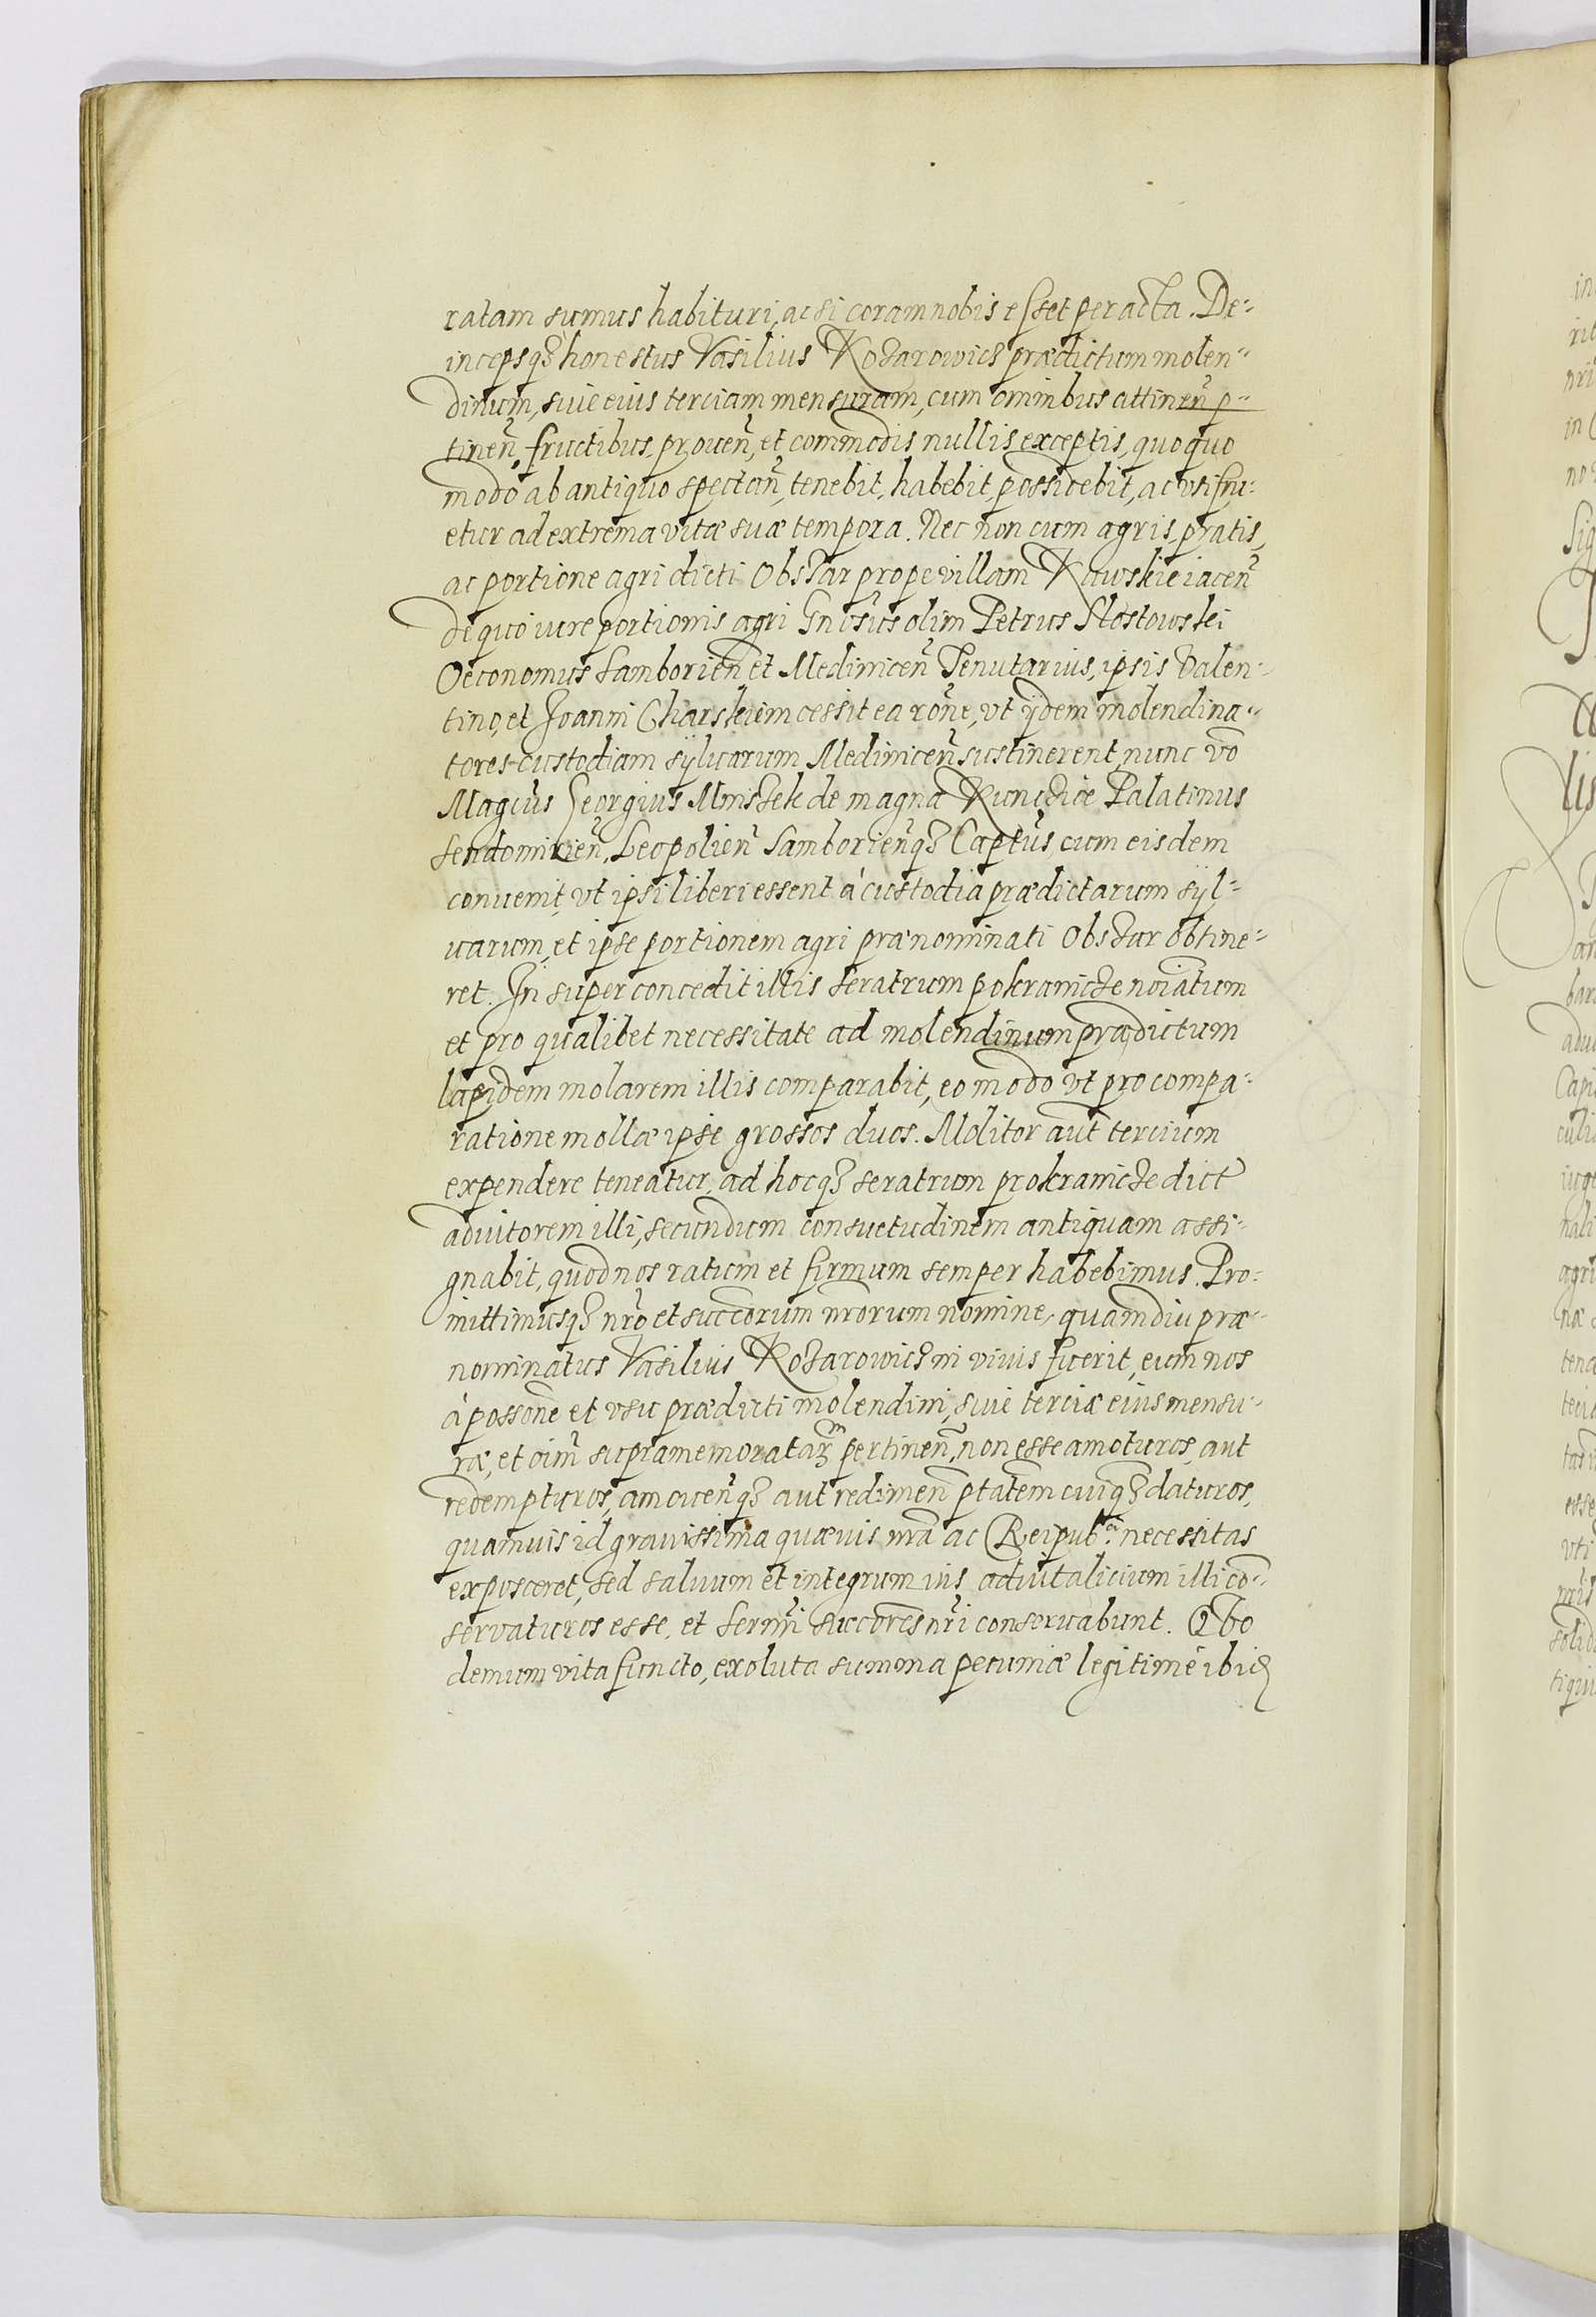 ratam sumus habituri, ac si coram nobis esset peracta. De-
incepsq₃ honestus Vasilius Kozarowicz prædictum molen-
dinum, siue eius terciam mensuram, cum omnibus attineñ p-
tineñ, fructibus, proueñ, et commodis nullis exceptis, quoquo
modo ab antiquo spectañ, tenebit, habebit, possidebit, ac vtifru-
etur ad extrema vitæ suæ tempora. Nec non cum agris, pratis,
ac portione agri dicti Obszar prope villam Kawskie iaceñ
de quo iure portionis agri Gnosus olim Petrus Slostowski
Oeconomus Samborieñ et Mediniceñ Tenutarius, ipsis Valen-
tino, et Joanni Charskiim cessit ea rone, vt ijdem molendina-
tores custodiam syluarum Mediniceñ sustinerent, nunc vo
Magcus Georgius Mniszek de magna Kunczice Palatinus
Sendomirieñ, Leopolieñ Samborieñq₃ Captus, cum eisdem
conuenit, vt ipsi liberi essent à custodia prædictarum syl-
uarum, et ipse portionem agri prænominati Obszar obtine-
ret. In super concedit illis seratrum pokranicze noiatum
et pro qualibet necessitate ad molendinum prædictum
lapidem molarem illis comparabit, eo modo vt pro compa-
ratione mollæ ipse grossos duos. Molitor aut tercium
expendere teneatur, ad hocq₃ seratrum prokranicze dict
aduitorem illi, secundum consuetudinem antiquam assi-
gnabit, quod nos ratum et firmum semper habebimus. Pro-
mittimusq₃ nro et succeorum nrorum nomine, quamdiu præ-
nominatus Vasilius Kozarowicz in viuis fuerit, eum nos
à possone et vsu prædicti molendini, siue terciæ eius mensu-
ræ, et oim supramemoratarm pertineñ, non esse amoturos, aut
redempturos, amoueñq₃ aut redimeñ ptatem cuiq₃ daturos,
quamuis id grauissima quæuis nra ac Reipub.cæ necessitas
exposceret, sed saluum et integrum ius aduitalicium illi co-
servaturos esse, et Sermi succores nri conseruabunt. Quo
demum vita functo, exoluta summa pecuniæ legitimè ibid